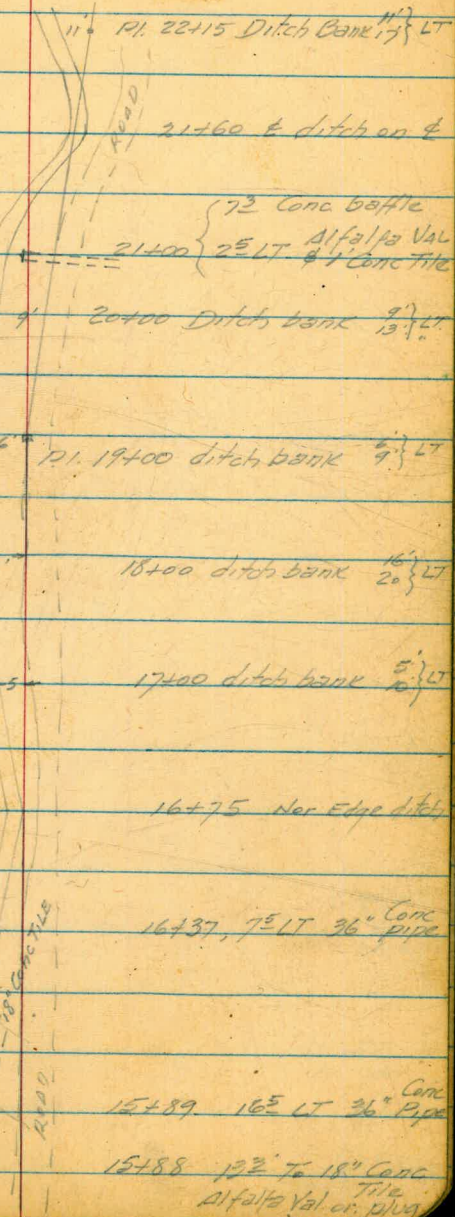 11' P.I. 22+15 Ditch Bank 11' 17' } LT
ROAD
21+60 ⅊ ditch on ⅊
7³ Conc baffle
21+00 { 2⁵ LT Alfalfa VAL
& 1' Conc Tile
9' 20+00 Ditch bank 9' 13' } LT
6' P.I. 19+00 ditch bank 6' 9' } LT
18+00 ditch bank 16' 20 } LT
5 17+00 ditch bank 5' 10' } LT
16+75 Nor Edge ditch
18" Conc TILE
16+37, 7⁵ LT 36" Conc pipe
ROAD
15+89 16⁵ LT 36" Conc Pipe
15+88 To 18" Conc Tile
Alfalfa Val. or plug